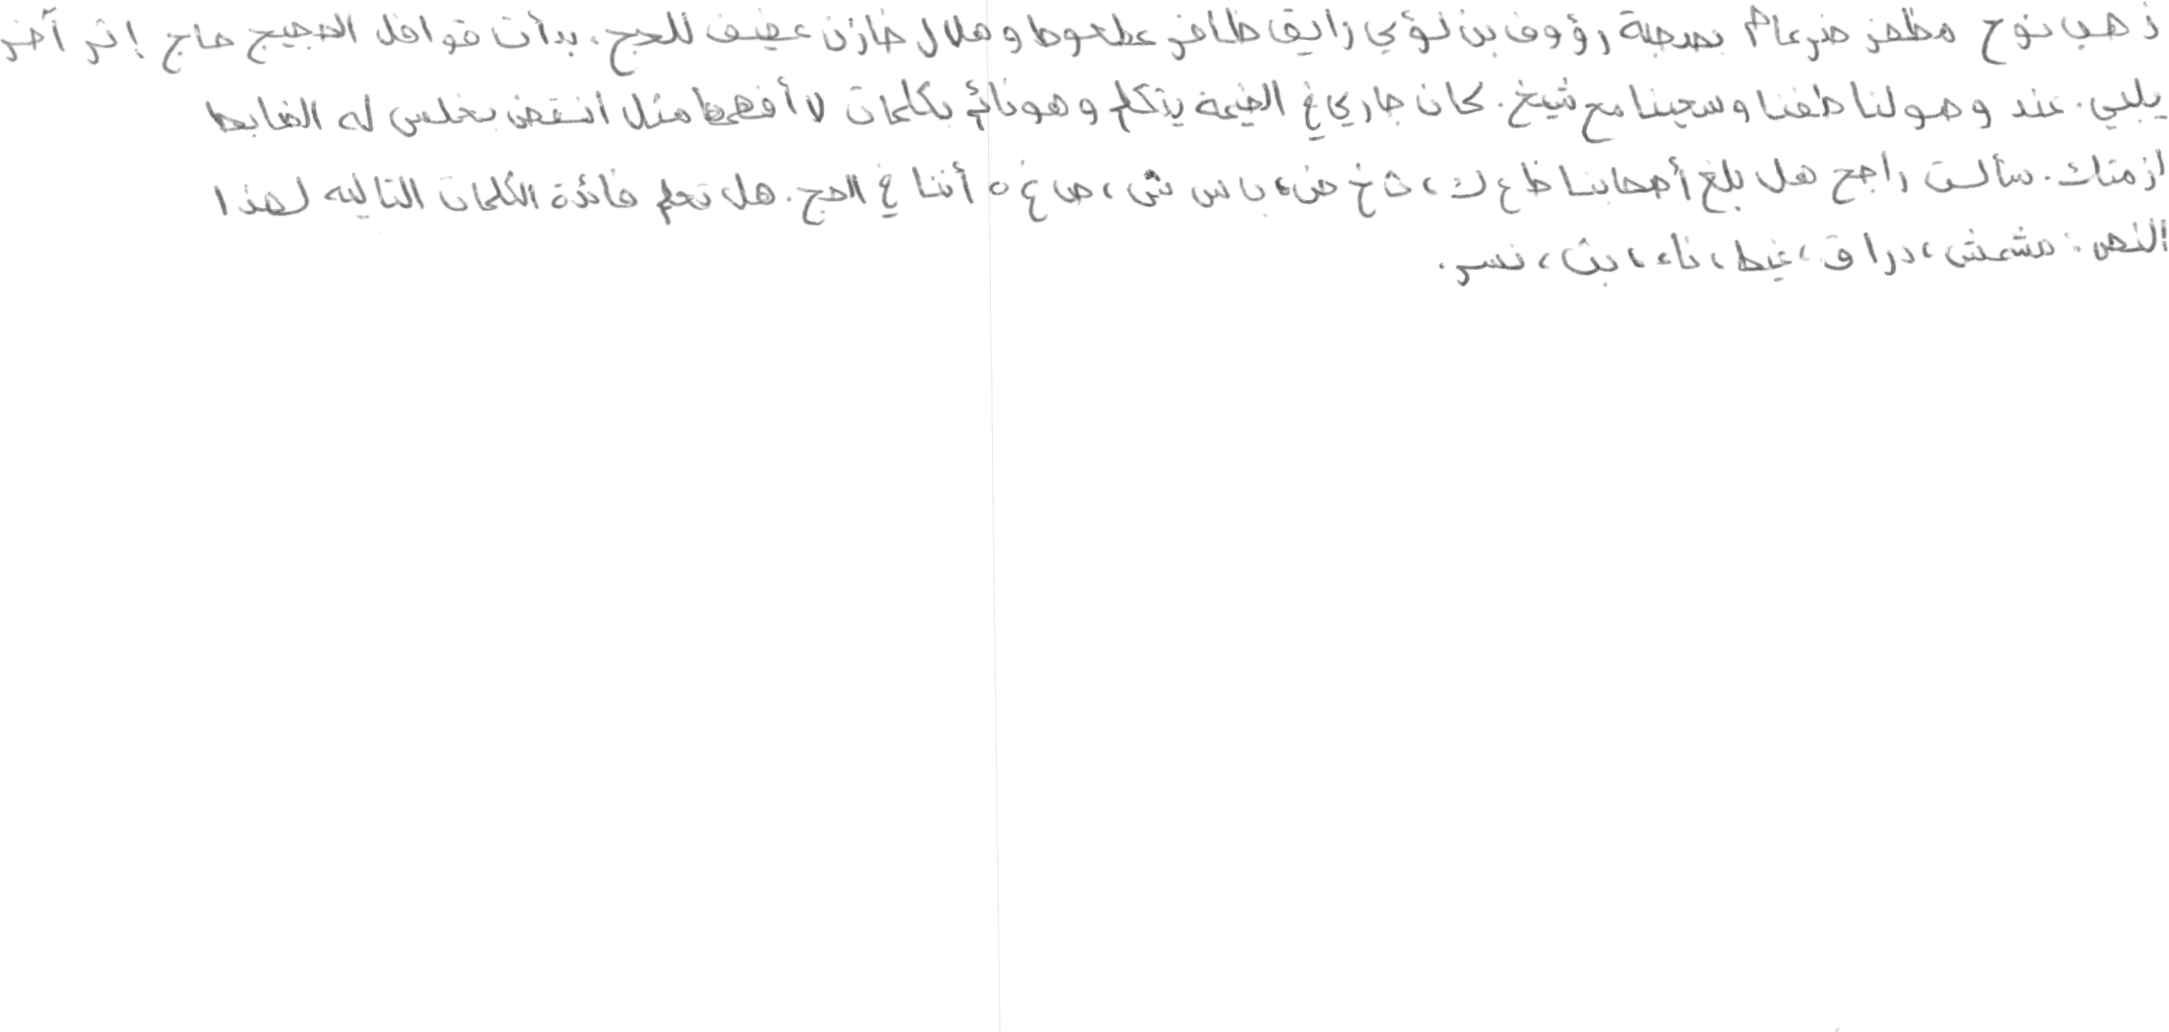 ذهب نوح مظفر ضرغام بصحبة رؤوف بن لؤي رايق ظافر عطعوط و هلال خازن عفيف للحج. بدأت قوافل الحجيج حاج إثر آخر
يلبي. عند وصولنا طفنا وسعينا مع شيخ. كان جاري في الخيمة يتكلم وهو نائم بكلمات لا أفهمها مثل أنقض بغلس له الضابط
ازمتك. سألت راجح هل بلغ أصحابنا ظ ع ك، ث خ ض، ب س ش، ص غ ه أننا في الحج. هل تعلم فائدة الكلمات التاليه لهذا
النص: مشمش، دراق، غيظ، ناء، بث، نسر.